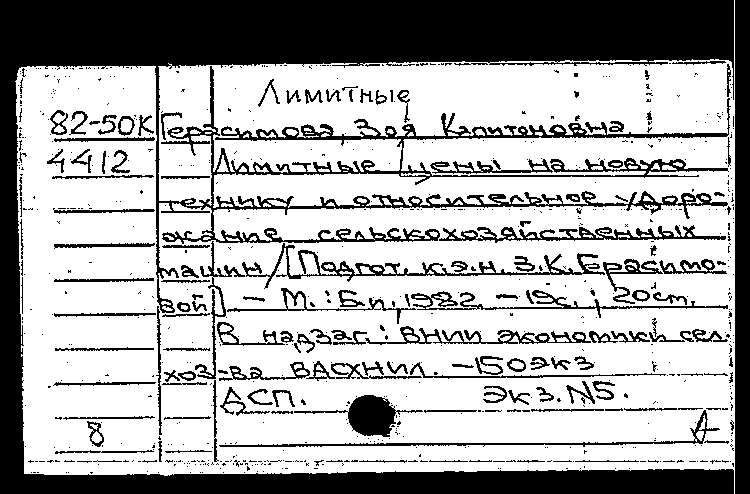 Лимитные
82-50К Герасимова, Зоя Капитоновна
4412 Лимитные цены на новую
технику и относительное удоро-
жание сельскохозяйственных
машин/[Подгот. к.э.н. З.К. Герасимо-
вой] - М.: Б.и., 1982. - 19с.; 20см.
В надзаг.: ВНИИ экономики сел.
хоз-ва ВАСХНИЛ. - 150экз
ДСП. Экз. N5.
8